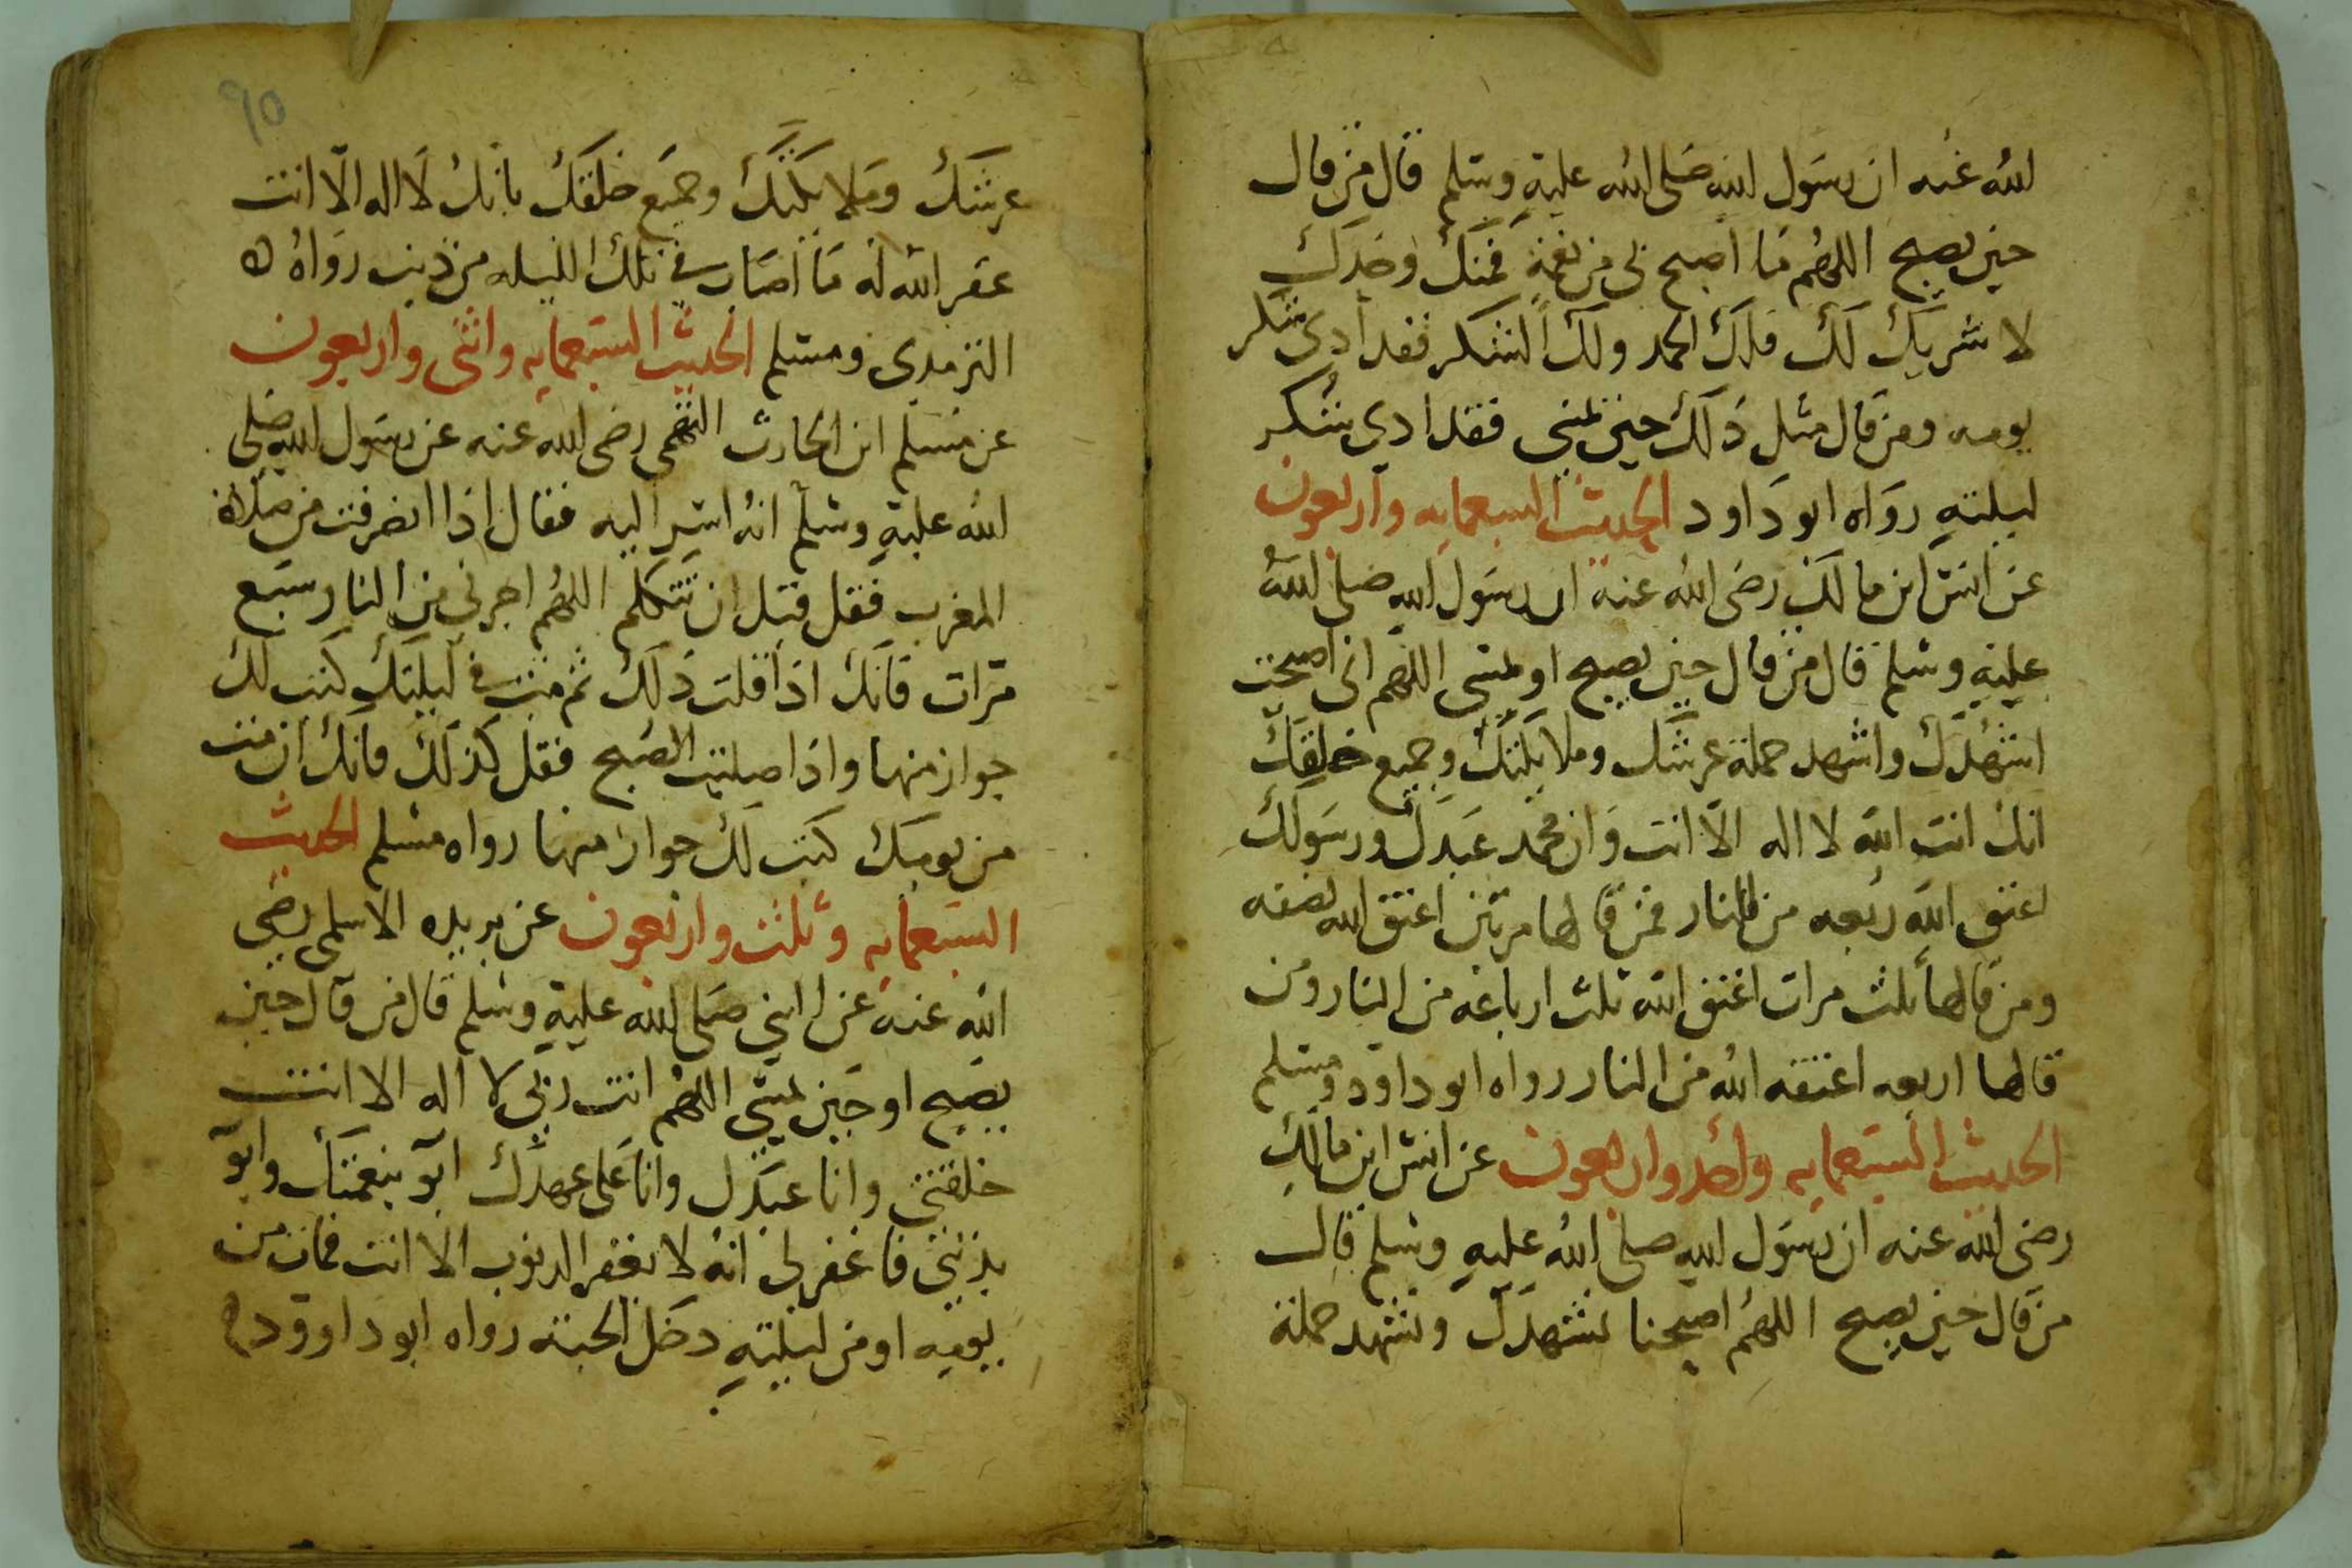 الله عنه ان رسول الله صلى الله عليه وسلم قال من قال
حين يصبح اللهم ما اصبح بى من نعمة فمنك وحدك
لا شريك لك فلك الحمد ولك الشكر فقد ادى شكر
يومه ومن قال مثل ذلك حين يمسى فقد ادى شكر
ليلته رواه ابو داود الحديث السبعمايه واربعون
عن انس ابن مالك رضى الله عنه ان رسول الله صلى الله
عليه وسلم قال من قال حين يصبح او يمسى اللهم انى اصبحت
اشهدك واشهد حملة عرشك وملايكتك وجميع خلقك
انك انت الله لا اله الا انت وان محمد عبدك ورسولك
اعتق الله ربعه من النار فمن قالها مرتين اعتق الله نصفه
ومن قالها ثلث مرات اعتق الله ثلث ارباعه من النار ومن
قالها اربعه اعتقه الله من النار رواه ابو داود ومسلم
الحديث السبعمايه واحد واربعون عن انس ابن مالك
رضى الله عنه ان رسول الله صلى الله عليه وسلم قال
من قال حين يصبح اللهم اصبحنا نشهدك ونشهد حملة
٩٥
عرشك وملايكتك وجميع خلقك بانك لا اله الا انت
غفر الله له ما اصاب في تلك الليله من ذنب رواه
الترمدى ومسلم الحديث السبعمايه واثنى واربعون
عن مسلم ابن الحارث التميمى رضى الله عنه عن رسول الله صلى
الله عليه وسلم انه اسر اليه فقال اذا انصرفت من صلاة
المغرب فقل قبل ان تتكلم اللهم اجرنى من النار سبع
مرات فانك اذا قلت ذلك ثم مت في ليلتك كتب لك
جواز منها واذا صليت الصبح فقل كذلك فانك ان مت
من يومك كتب لك جواز منها رواه مسلم الحديث
السبعمايه وثلث واربعون عن بريده الاسلمى رضى
الله عنه عن النبي صلى الله عليه وسلم قال من قال حين
يصبح او حين يمسى اللهم انت ربى لا اله الا انت
خلقتنى وانا عبدك وانا على عهدك ابو بنعمتك وابو
بذنبى فاغفر لى انه لا يغفر الدنوب الا انت فمات من
يومه او من ليلته دخل الجنه رواه ابو داوود